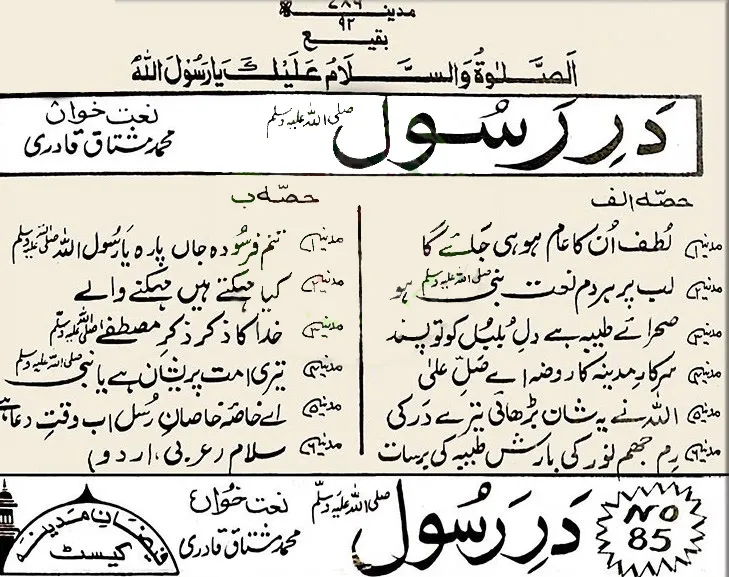 ۷۸۶
مدینہ
۹۲
بقیع
اَلصَّلٰوۃُ وَالسَّلَامُ عَلَیْكَ یَا رَسُوْلَ اللّٰہ
دَرِ رَسُول صلی اللہ علیہ وسلم
نعت خواں
محمد مشتاق قادری
حصّہ الف
مدینہ۱ لُطف اُن کا عام ہو ہی جائے گا
مدینہ۲ لب پر ہر دم نعت نبی صلی اللہ علیہ وسلم ہو
مدینہ۳ صحرائے طیبہ ہے دلِ بلبل کو تو پسند
مدینہ۴ سرکارِ مدینہ کا روضہ اے صَلِّ علیٰ
مدینہ۵ اللہ نے یہ شان بڑھائی تیرے در کی
مدینہ۶ رِم جھم نور کی بارش طیبہ کی برسات
حصّہ ب
مدینہ۱ تنم فرسودہ جاں پارہ یا رسول اللہ صلی اللہ علیہ وسلم
مدینہ۲ کیا مہکتے ہیں مہکنے والے
مدینہ۳ خدا کا ذکر ذکرِ مصطفےٰ صلی اللہ علیہ وسلم
مدینہ۴ تیری امت پریشان ہے یا نبی صلی اللہ علیہ وسلم
مدینہ۵ اے خاصۂ خاصانِ رُسل اب وقتِ دعا ہے
مدینہ۶ سلام (عربی، اردو)
NO
85
دَرِ رَسُول صلی اللہ علیہ وسلم
نعت خواں
محمد مشتاق قادری
فیضانِ مدینہ
کیسٹ